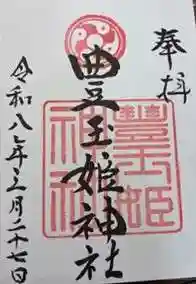 奉拝
豊玉姫神社
豊玉姫
神社
令和八年三月二十七日